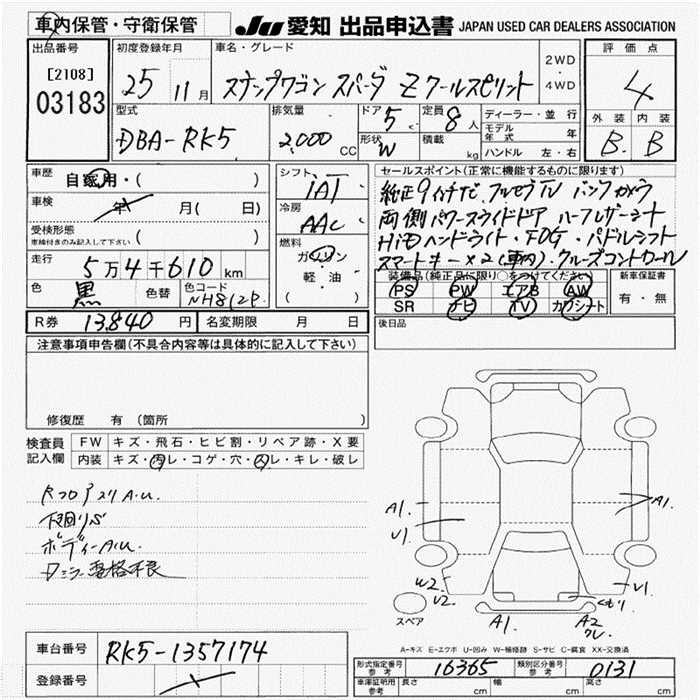 車内保管・守衛保管
JU 愛知 出品申込書 JAPAN USED CAR DEALERS ASSOCIATION
出品番号 初度登録年月 車名・グレード 2WD・4WD 評価点
[2108]
03183
25 11月
ステップワゴン スパーダ Zクールスピリット
4
外装 内装
B B
型式 排気量 ドア 定員 ディーラー・並行
DBA-RK5 2,000 CC 5 8人
モデル年式 年
形状 W 積載 kg ハンドル 左・右
車歴 自家用・( )
シフト IAT
セールスポイント(正常に機能するものに限ります)
純正9インチナビ フルセグTV バックカメラ
両側パワースライドドア ハーフレザーシート
HiDヘッドライト・FOG・パドルシフト
スマートキー×2(車内)・クルーズコントロール
車検 年 月( 日)
冷房 AAC
受検形態
車検付きのみ記入して下さい ( )
燃料 ガソリン
軽・油
( )
走行 5万4千610km
色 黒 色替 色コード NH812P
装備品(純正品に限り○をつけてください) 新車保証書
PS PW エアB AW 有・無
SR ナビ TV カワシート
R券 13,840円 名変期限 月 日
後日品
注意事項申告欄(不具合内容等は具体的に記入して下さい)
修復歴 有(箇所 )
検査員記入欄 FW キズ・飛石・ヒビ割・リペア跡・X要
内装 キズ・汚レ・コゲ・穴・スレ・キレ・破レ
A.U.
下廻りS
ボディーA.U.
A1. A1.
U1. U1.
W2. U2.
スペア A1. A2
A-キズ E-エクボ U-凹み W-補修跡 S-サビ C-腐食 XX-交換済
車台番号 RK5-1357174
登録番号
形式指定番号 参考 16365 類別区分番号 参考 0131
車庫証明用 参考 長さ cm 幅 cm 高さ cm